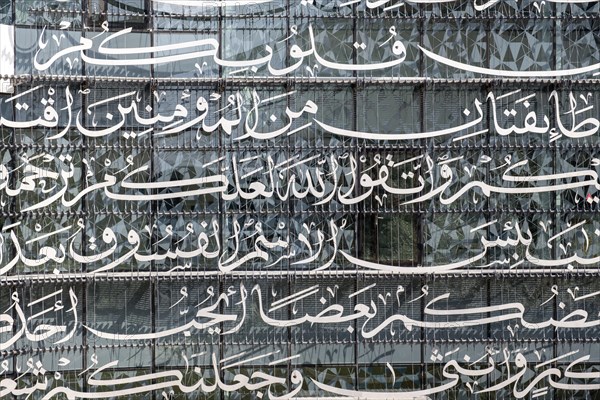 قُلُوبِكُمْ
طَائِفَتَانِ مِنَ الْمُؤْمِنِينَ اقْتَ
يْكُمْ وَاتَّقُوا اللَّهَ لَعَلَّكُمْ تُرْحَمُو
بِئْسَ الِاسْمُ الْفُسُوقُ بَعْدَ
ضُكُمْ بَعْضًا أَيُحِبُّ أَحَدُ
كَرٍ وَأُنْثَى وَجَعَلْنَاكُمْ شُعُو